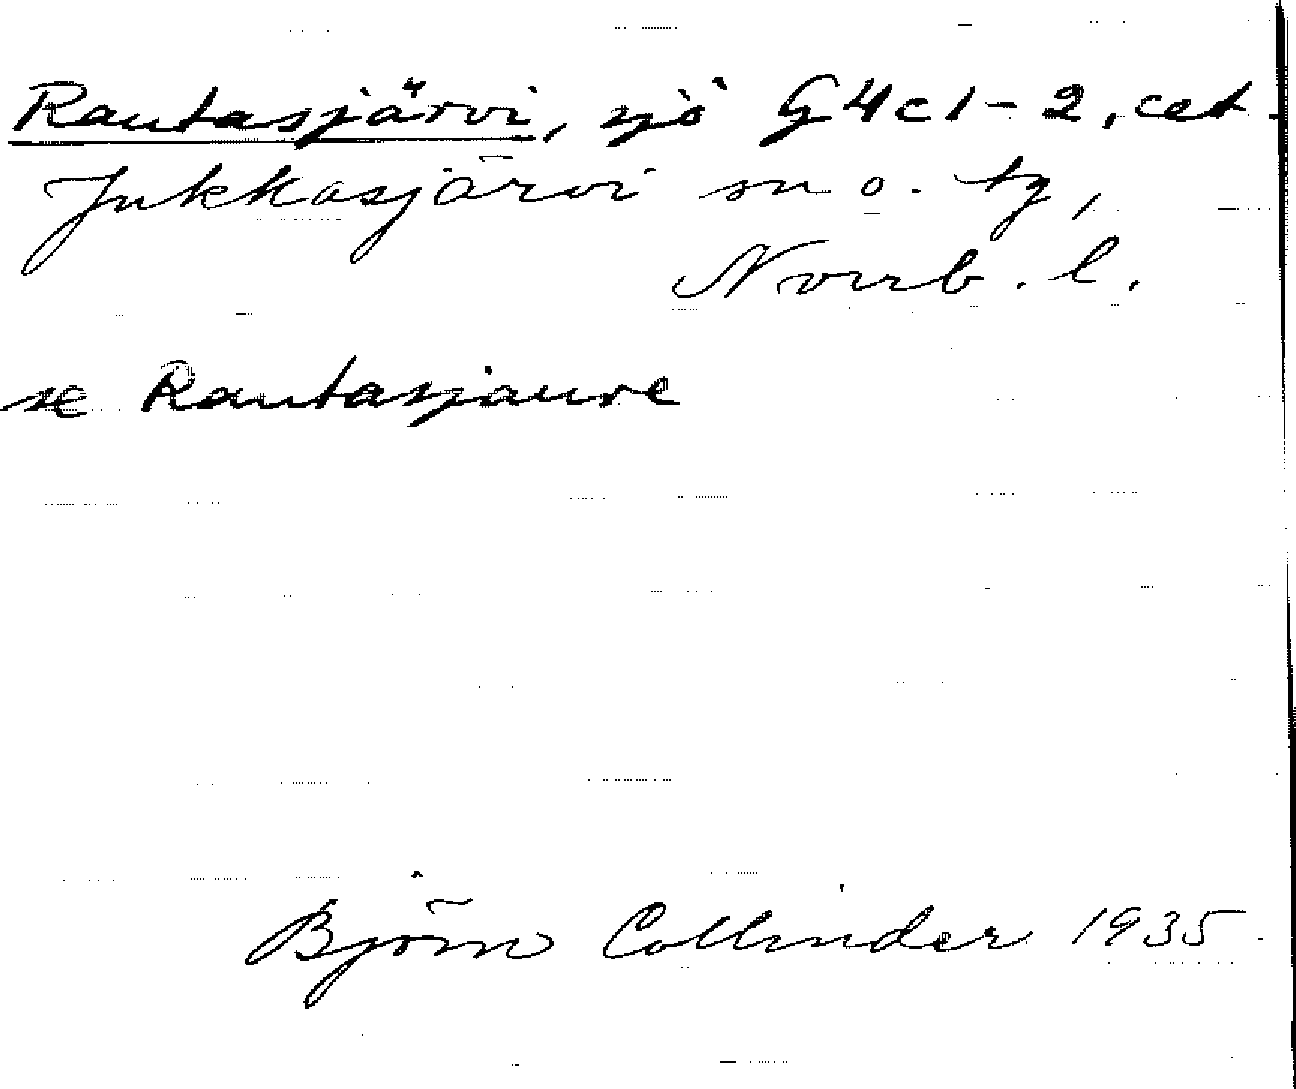 Rautasjärvi, sjö G4c1-2, cet.
Jukkasjärvi sn o. tg,
Norrb. l.
se Rautasjaure
Björn Collinder 1935